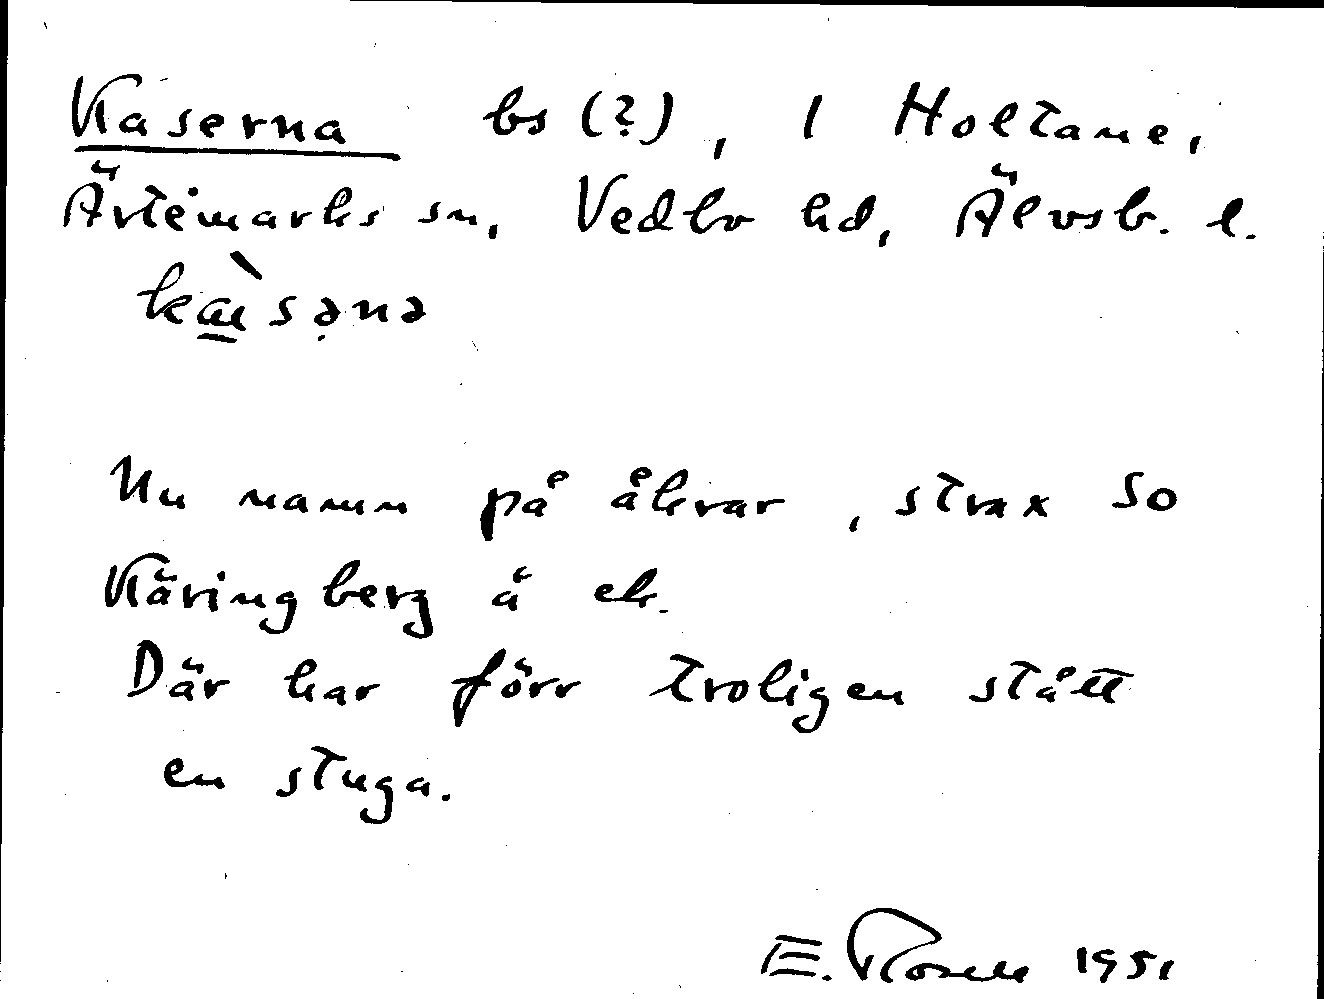 Kaserna bs (?), 1 Holtane,
Ärtemarks sn, Vedbo hd, Älvsb. l.
Nu namn på åkrar, strax SO
Käringberg å ek.
Där har förr troligen stått
en stuga.
E. Rosell 1951